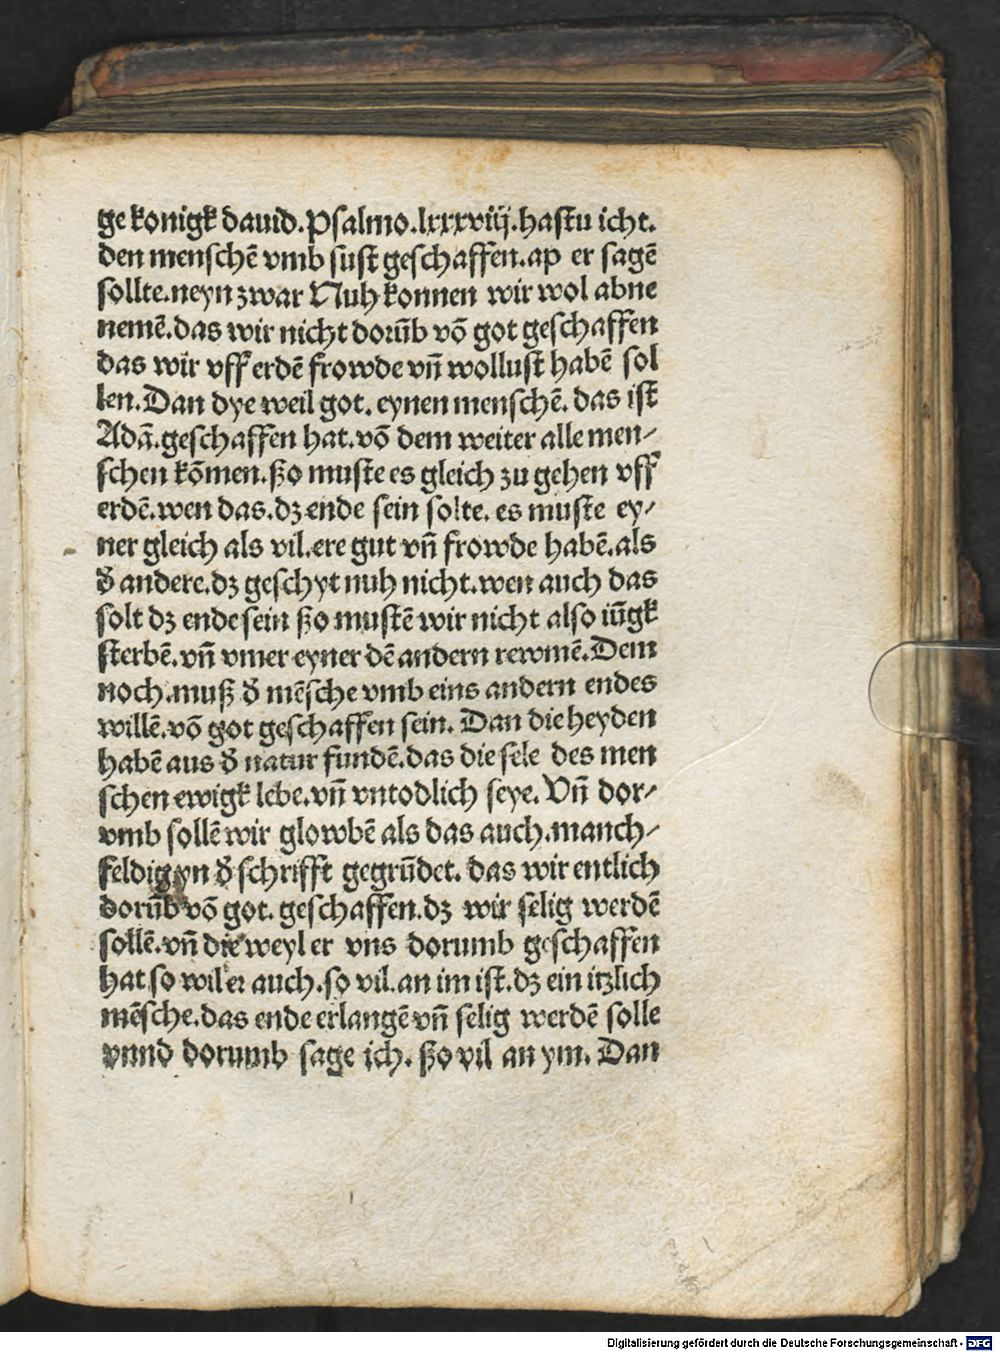 ge konigk dauid.Psalmo.lxxxviij.hastu icht.
den menschē vmb sust geschaffen.ap er sagē
sollte.neyn zwar Nuh konnen wir wol abne
nemē.das wir nicht dorūb vō got geschaffen
das wir vff erdē frowde vñ wollust habē sol
len.Dan dye weil got. eynen menschē. das ist
Adā.geschaffen hat.vō dem weiter alle men⸗
schen kōmen.ßo muste es gleich zu gehen vff
erdē.wen das.dz ende sein solte. es muste ey⸗
ner gleich als vil.ere gut vñ frowde habē.als
d̄ andere.dz geschyt nuh nicht.wen auch das
solt dz ende sein ßo mustē wir nicht also iūgk
sterbē.vñ vmer eyner dē andern rewmē.Dem
noch.muß d̄ mēsche vmb eins andern endes
willē.vō got geschaffen sein. Dan die heyden
habē aus d̄ natur fundē.das die sele des men
schen ewigk lebe.vñ vntodlich seye. Vñ dor⸗
vmb sollē wir glowbē als das auch.manch⸗
feldig yn d̄ schrifft gegrūdet. das wir entlich
dorūb vō got. geschaffen.dz wir selig werdē
sollē.vñ die weyl er vns dorumb geschaffen
hat so wil er auch.so vil.an im ist.dz ein itzlich
mēsche.das ende erlangē vñ selig werdē solle
vnnd dorumb sage ich. ßo vil an ym. Dan
Digitalisierung gefördert durch die Deutsche Forschungsgemeinschaft - DFG